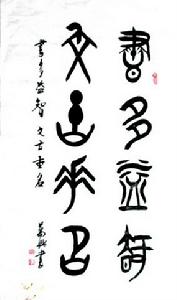 書多益智
文古垂名
書多益智文古垂名
書